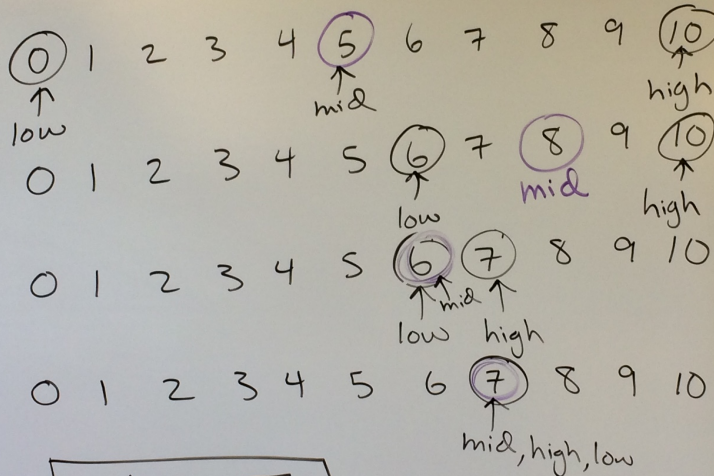 0 1 2 3 4 5 6 7 8 9 10
low mid high
0 1 2 3 4 5 6 7 8 9 10
low mid high
0 1 2 3 4 5 6 7 8 9 10
low mid high
0 1 2 3 4 5 6 7 8 9 10
mid, high, low